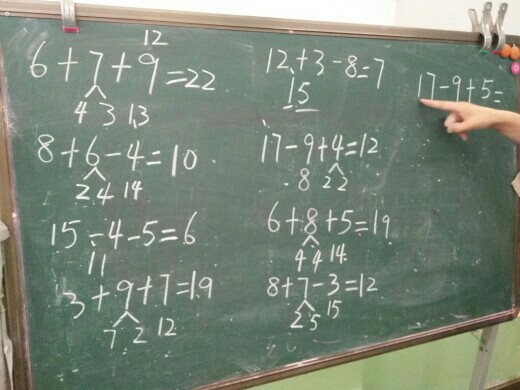 12
6+7+9=22
4 3 13
8+6-4=10
2 4 14
15-4-5=6
11
3+9+7=19
7 2 12
12+3-8=7
15
17-9+4=12
8 2 2
6+8+5=19
4 4 14
8+7-3=12
2 5 15
17-9+5=